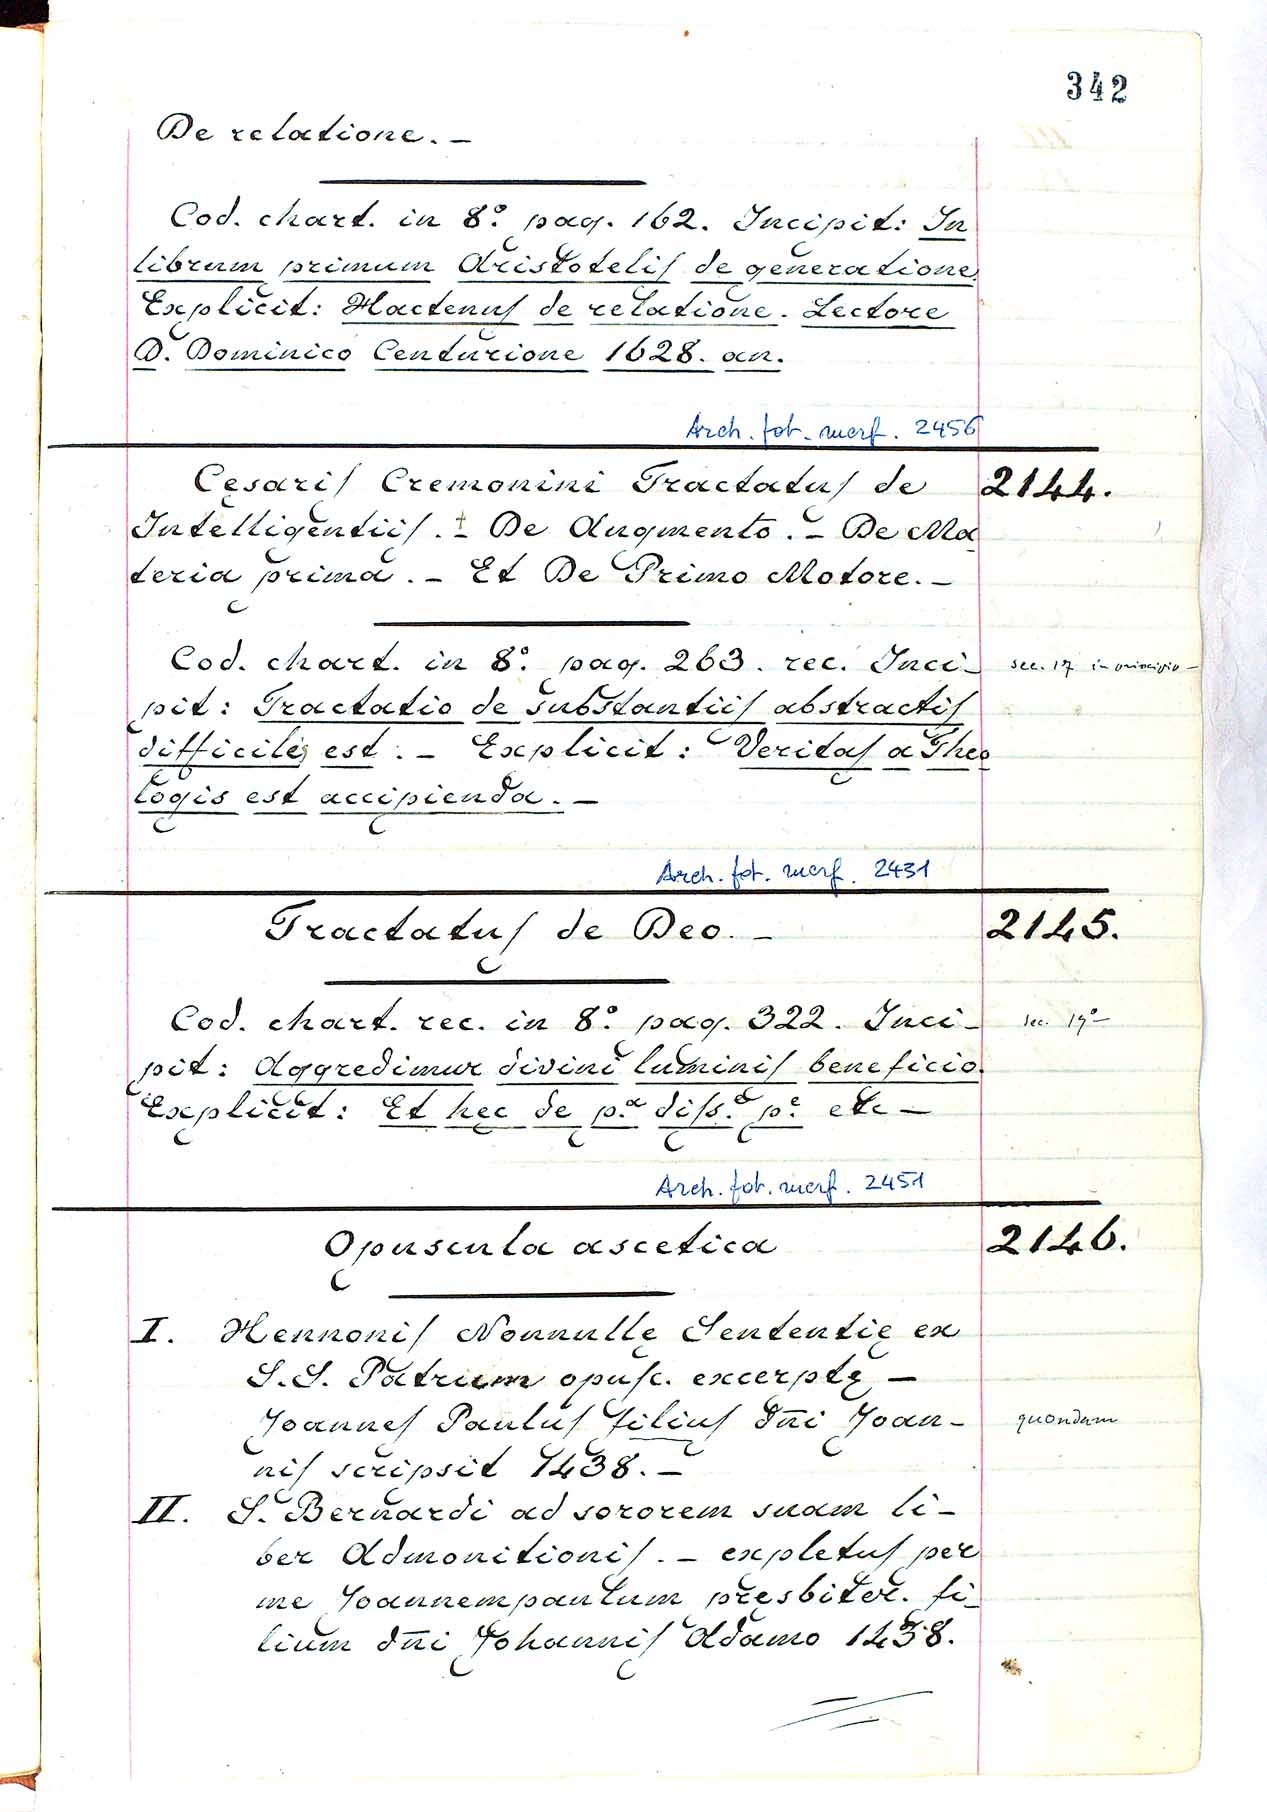 342
De relatione. –
Cod. chart. in 8.º pag. 162. Incipit: In
librum primum Aristotelis de generatione.
Explicit: Hactenus de relatione. Lectore
D. Dominico Centurione 1628. an.
Arch. fot. merf. 2456
Cęsaris Cremonini Tractatus de 2144.
Intelligentiis. – De Augmento. – De Ma
teria prima. – Et De Primo Motore. –
Cod. chart. in 8.º pag. 263. rec. Inci– sec. 17 in principio –
pit: Tractatio de substantiis abstractis
difficilis est. – Explicit: Veritas a Theo
logis est accipienda. –
Arch. fot. merf. 2431
Tractatus de Deo. – 2145.
Cod. chart. rec. in 8.º pag. 322. Inci– sec. 17º–
pit: Aggredimur divini luminis beneficio.
Explicit: Et hec de p.ª diss.ᵉ pᵉ. etc –
Arch. fot. merf. 2451
Opuscula ascetica 2146.
I. Hennonis Nonnullę Sententię ex
S.S. Patrum opusc. excerptę –
Joannes Paulus filius dñi Joan– quondam
nis scripsit 1438. –
II. S. Bernardi ad sororem suam li–
ber Admonitionis. – expletus per
me Joannempaulum presbiter. fi–
lium dñi Johannis Adamo 1438.